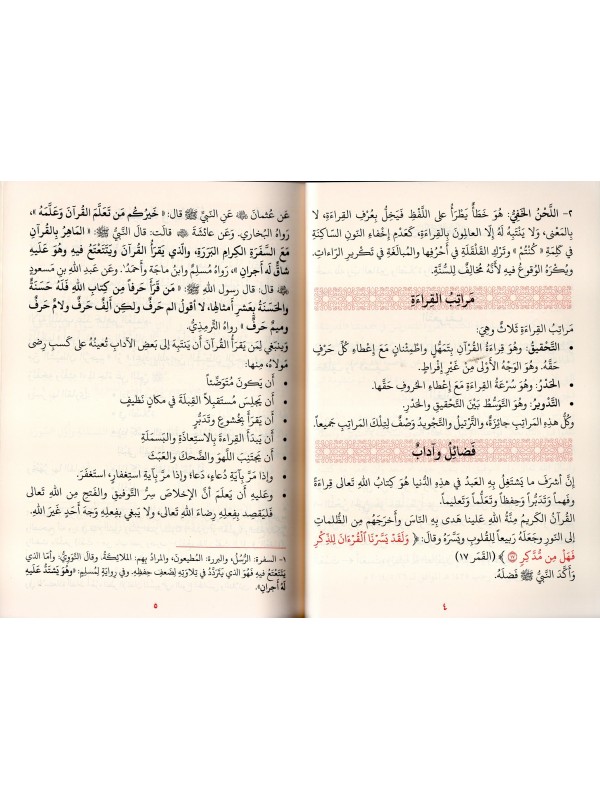 ٢- اللَّحْنُ الخَفِيُّ: هُوَ خَطَأٌ يَطْرَأُ عَلى اللَّفْظِ فَيَخِلُّ بِعُرْفِ القِراءَةِ، لا
بِالمَعْنى، وَلا يَنْتَبِهُ لَهُ إلّا العالِمونَ بِالقِراءَةِ، كَعَدَمِ إخْفاءِ النّونِ السّاكِنَةِ
في كَلِمَةِ « كُنْتُمْ » وَتَرْكِ القَلْقَلَةِ في أَحْرُفِها وَالمُبالَغَةِ في تَكْريرِ الرّاءاتِ.
وَيُكْرَهُ الوُقوعُ فيهِ لأَنَّهُ مُخالِفٌ لِلسُّنَّةِ.
مَراتِبُ القِراءَةِ
مَراتِبُ القِراءَةِ ثَلاثٌ وهِيَ:
• التَّحْقيقُ: وهُوَ قِراءَةُ القُرْآنِ بِتَمَهُّلٍ واطْمِئْنانٍ مَعَ إعْطاءِ كُلِّ حَرْفٍ
حَقَّهُ. وهُوَ الوَجْهُ الأَوْلى مِنْ غَيْرِ إفْراطٍ.
• الحَدْرُ: وهُوَ سُرْعَةُ القِراءَةِ مَعَ إعْطاءِ الحُروفِ حَقَّها.
• التَّدْويرُ: وهُوَ التَّوَسُّطُ بَيْنَ التَّحْقيقِ والحَدْرِ.
وكُلُّ هذِهِ المَراتِبِ جائِزَةٌ، والتَّرْتيلُ والتَّجْويدُ وَصْفٌ لِتِلْكَ المَراتِبِ جَميعاً.
فَضائِلُ وآدابٌ
إنَّ أشرَفَ ما يَشتَغِلُ بِهِ العَبدُ في هذِهِ الدُّنيا هُوَ كِتابُ اللهِ تَعالى قِراءَةً
وفَهماً وَتَدَبُّراً وَحِفظاً وَتَعَلُّماً وَتَعليماً.
القُرآنُ الكَريمُ مِنَّةُ اللهِ عَلَينا هَدى بِهِ النّاسَ وَأخرَجَهُم مِنَ الظُّلُماتِ
إلى النّورِ وجَعَلَهُ رَبيعاً لِلقُلوبِ ويَسَّرَهُ وقالَ: ﴿ وَلَقَدْ يَسَّرْنَا ٱلْقُرْءَانَ لِلذِّكْرِ
فَهَلْ مِن مُّدَّكِرٍ ۝ ﴾ (القَمَر ١٧)
وَأَكَّدَ النَّبِيُّ ﷺ فَضلَهُ.
٤
عَن عُثمانَ ﷺ عَنِ النَّبِيِّ ﷺ قالَ: « خَيرُكُم مَن تَعَلَّمَ القُرآنَ وَعَلَّمَهُ »،
رَواهُ البُخاري. وَعَن عائشَةَ قالَت: قالَ النَّبِيُّ ﷺ: « الماهِرُ بِالقُرآنِ
مَعَ السَّفَرَةِ الكِرامِ البَرَرَةِ، والّذي يَقرَأُ القُرآنَ وَيَتَتَعتَعُ فيهِ وهُوَ عَلَيهِ
شاقٌّ لَهُ أجرانِ» رَواهُ مُسلِمٌ وابنُ ماجَة وأحمَدُ. وعَن عَبدِ اللهِ بنِ مَسعودٍ
قالَ: قالَ رسول اللهِ ﷺ: « مَن قَرَأَ حَرفاً مِن كِتابِ اللهِ فَلَهُ حَسَنَةٌ
والحَسَنَةُ بِعَشرِ أمثالِها، لا أقولُ الم حَرفٌ ولكِن ألِفٌ حَرفٌ ولامٌ حَرفٌ
وميمٌ حَرفٌ » رواهُ التِّرمِذِيُّ.
وَيَنبَغي لِمَن يَقرَأُ القُرآنَ أن يَنتَبِهَ إلى بَعضِ الآدابِ تُعينُهُ عَلى كَسبِ رِضى
مَولاهُ، مِنها:
• أن يَكونَ مُتَوَضِّئاً
• أن يَجلِسَ مُستَقبِلاً القِبلَةَ في مَكانٍ نَظيفٍ
• أن يَقرَأَ بِخُشوعٍ وَتَدَبُّرٍ
• أن يَبدَأَ القِراءةَ بِالاستِعاذَةِ وَالبَسمَلَةِ
• أن يَجتَنِبَ اللهوَ وَالضَّحِكَ وَالعَبَثَ
• وإذا مَرَّ بِآيَةِ دُعاءٍ، دَعا؛ وإذا مَرَّ بِآيَةِ إستِغفارٍ، استَغفَرَ.
• وعَلَيهِ أن يَعلَمَ أنَّ الإخلاصَ سِرُّ التَّوفيقِ والفَتحِ مِن اللهِ تَعالى
فَليَقصِد بِفِعلِهِ رِضاءَ اللهِ تَعالى، ولا يَبغي بِفِعلِهِ وَجهَ أحَدٍ غَيرَ اللهِ.
١- السفرة: الرُّسُلُ، والبررة: المطيعونَ، والمرادُ بِهِم: الملائِكَةُ. وقالَ النَّوَوِيُّ: وأمّا الذي
يَتَتَعْتَعُ فيهِ فَهُوَ الذي يَتَرَدَّدُ في تِلاوَتِهِ لِضَعفِ حِفظِهِ. وفي رِوايَةٍ لِمُسلِمٍ: «وهُوَ يَشتَدُّ عَلَيهِ
لَهُ أجرانِ».
٥